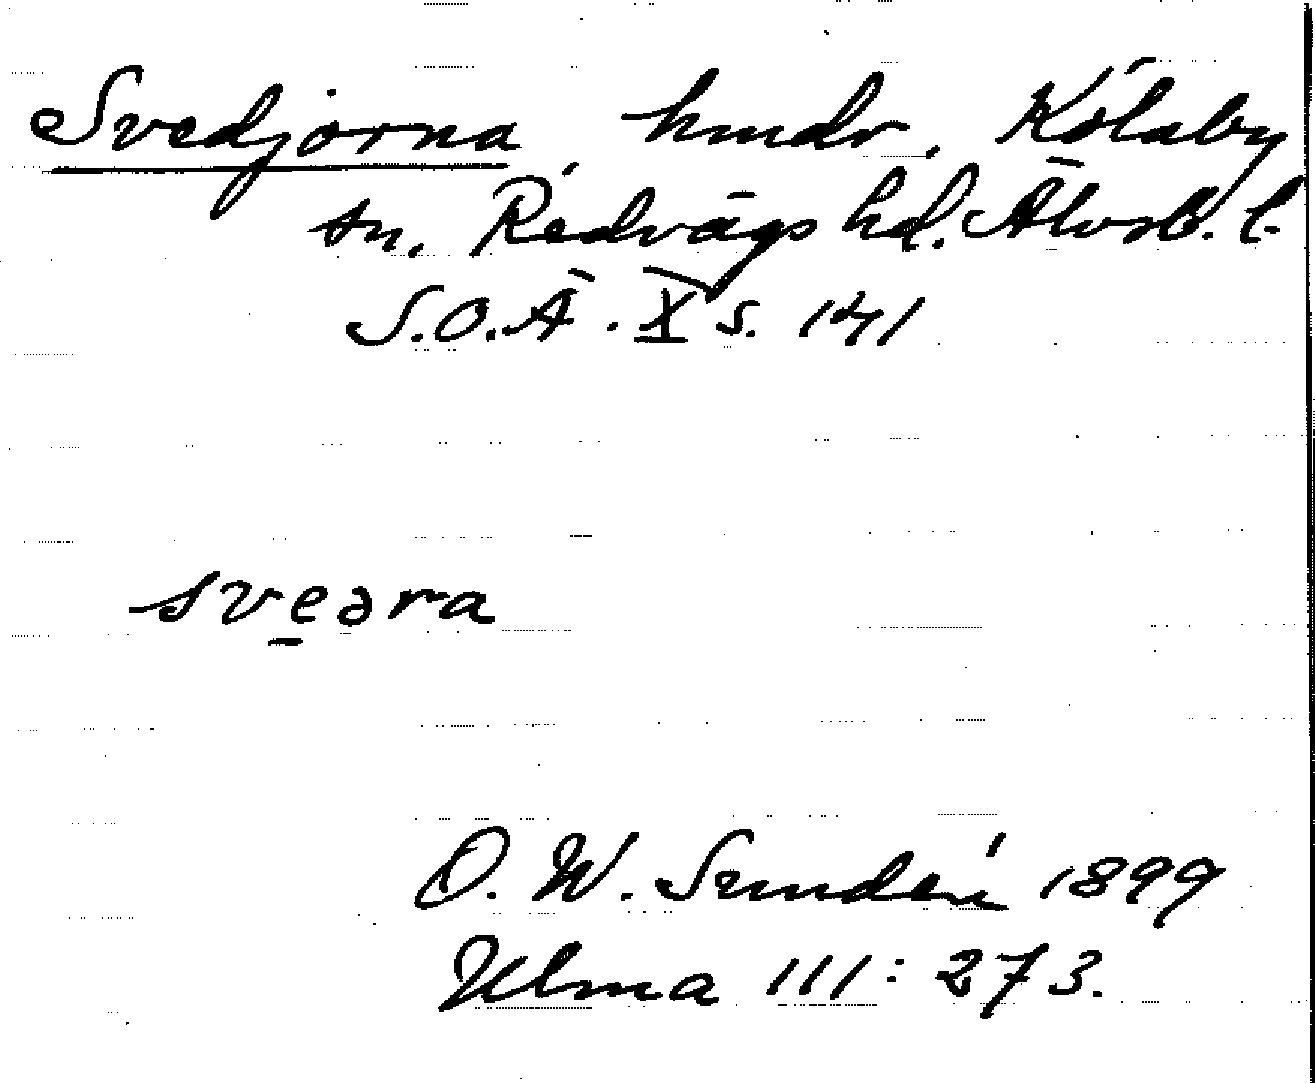 Svedjorna, hmdr, Kölaby
sn, Redvägs hd. Älvsb. l.
S.O.Ä. X s. 141
sveəra
O. W. Sundén 1899
Ulma 111:273.